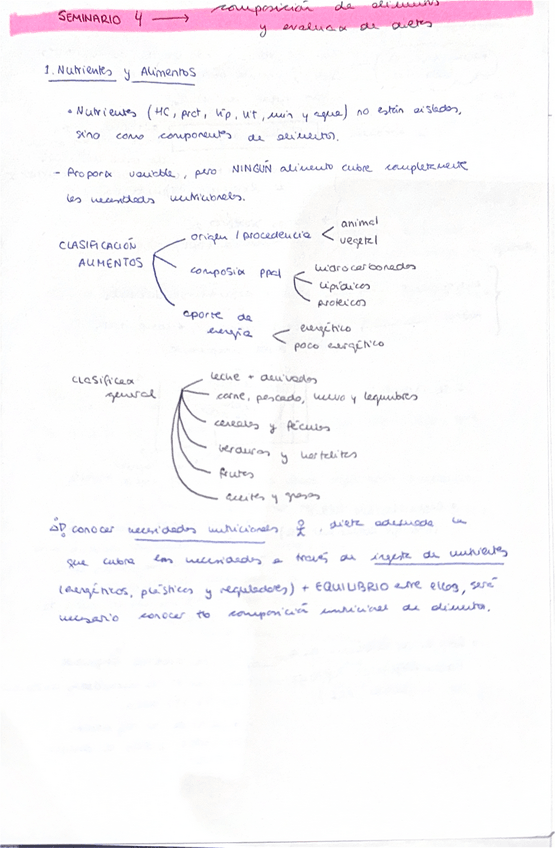 SEMINARIO 4 → composición de alimentos
y evaluac de dietas
1. Nutrientes y Alimentos
• Nutrientes (HC, prot, lip, vit, min y agua) no están aislados,
sino como componentes de alimentos.
- Proporc variable, pero NINGÚN alimento cubre completamente
las necesidades nutricionales.
CLASIFICACIÓN ALIMENTOS
origen / procedencia
animal
vegetal
composic ppal
hidrocarbonados
lipídicos
proteicos
aporte de energía
energético
poco energético
clasificac general
leche + derivados
carne, pescado, huevo y legumbres
cereales y féculas
verduras y hortalizas
frutas
aceites y grasas
conocer necesidades nutricionales , dieta adecuada la
que cubra las necesidades a través de ingesta de nutrientes
(energéticos, plásticos y reguladores) + EQUILIBRIO entre ellos, será
necesario conocer composición nutricional de alimentos.